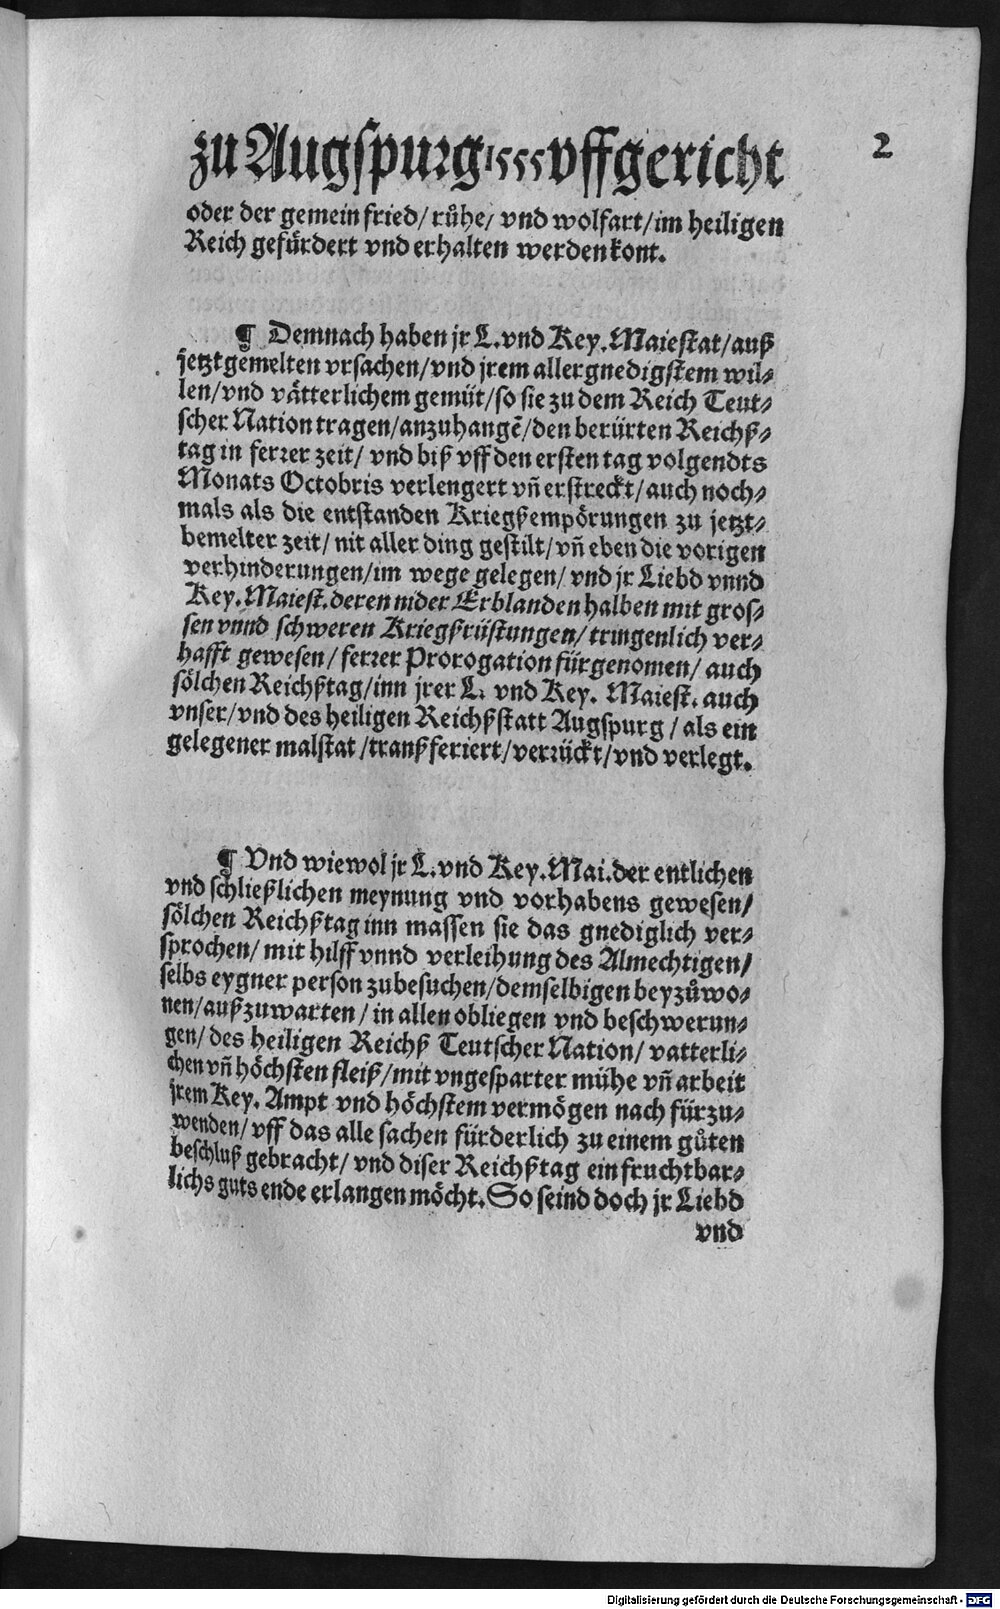 zu Augspurg 1555 vffgericht
2
oder der gemein fried/ růhe/ vnd wolfart/ im heiligen
Reich gefürdert vnd erhalten werden kont.
¶ Demnach haben jr L. vnd Key. Maiestat/ auß
jetztgemelten vrsachen/ vnd jrem allergnedigstem wil⸗
len/ vnd vätterlichem gemüt/ so sie zu dem Reich Teut⸗
scher Nation tragen/ anzuhangē/ den berürten Reichß⸗
tag in ferrer zeit/ vnd biß vff den ersten tag volgendts
Monats Octobris verlengert vñ erstreckt/ auch noch⸗
mals als die entstanden Kriegßempörungen zu jetzt⸗
bemelter zeit/ nit aller ding gestilt/ vñ eben die vorigen
verhinderungen/ im wege gelegen/ vnd jr Liebd vnnd
Key. Maiest. deren nider Erblanden halben mit gros⸗
sen vnnd schweren Kriegßrüstungen/ tringenlich ver⸗
hafft gewesen/ ferrer Prorogation fürgenomen/ auch
sölchen Reichßtag/ inn jrer L. vnd Key. Maiest. auch
vnser/ vnd des heiligen Reichßstatt Augspurg/ als ein
gelegener malstat/ tranßferiert/ verrückt/ vnd verlegt.
¶ Vnd wiewol jr L. vnd Key. Mai. der entlichen
vnd schließlichen meynung vnd vorhabens gewesen/
sölchen Reichßtag inn massen sie das gnediglich ver⸗
sprochen/ mit hilff vnnd verleihung des Almechtigen/
selbs eygner person zubesuchen/ demselbigen beyzůwo⸗
nen/ außzuwarten/ in allen obliegen vnd beschwerun⸗
gen/ des heiligen Reichß Teutscher Nation/ vatterli⸗
chen vñ höchsten fleiß/ mit vngesparter mühe vñ arbeit
jrem Key. Ampt vnd höchstem vermögen nach fürzu⸗
wenden/ vff das alle sachen fürderlich zu einem gůten
beschluß gebracht/ vnd diser Reichßtag ein fruchtbar⸗
lichs guts ende erlangen möcht. So seind doch jr Liebd
vnd
Digitalisierung gefördert durch die Deutsche Forschungsgemeinschaft - DFG